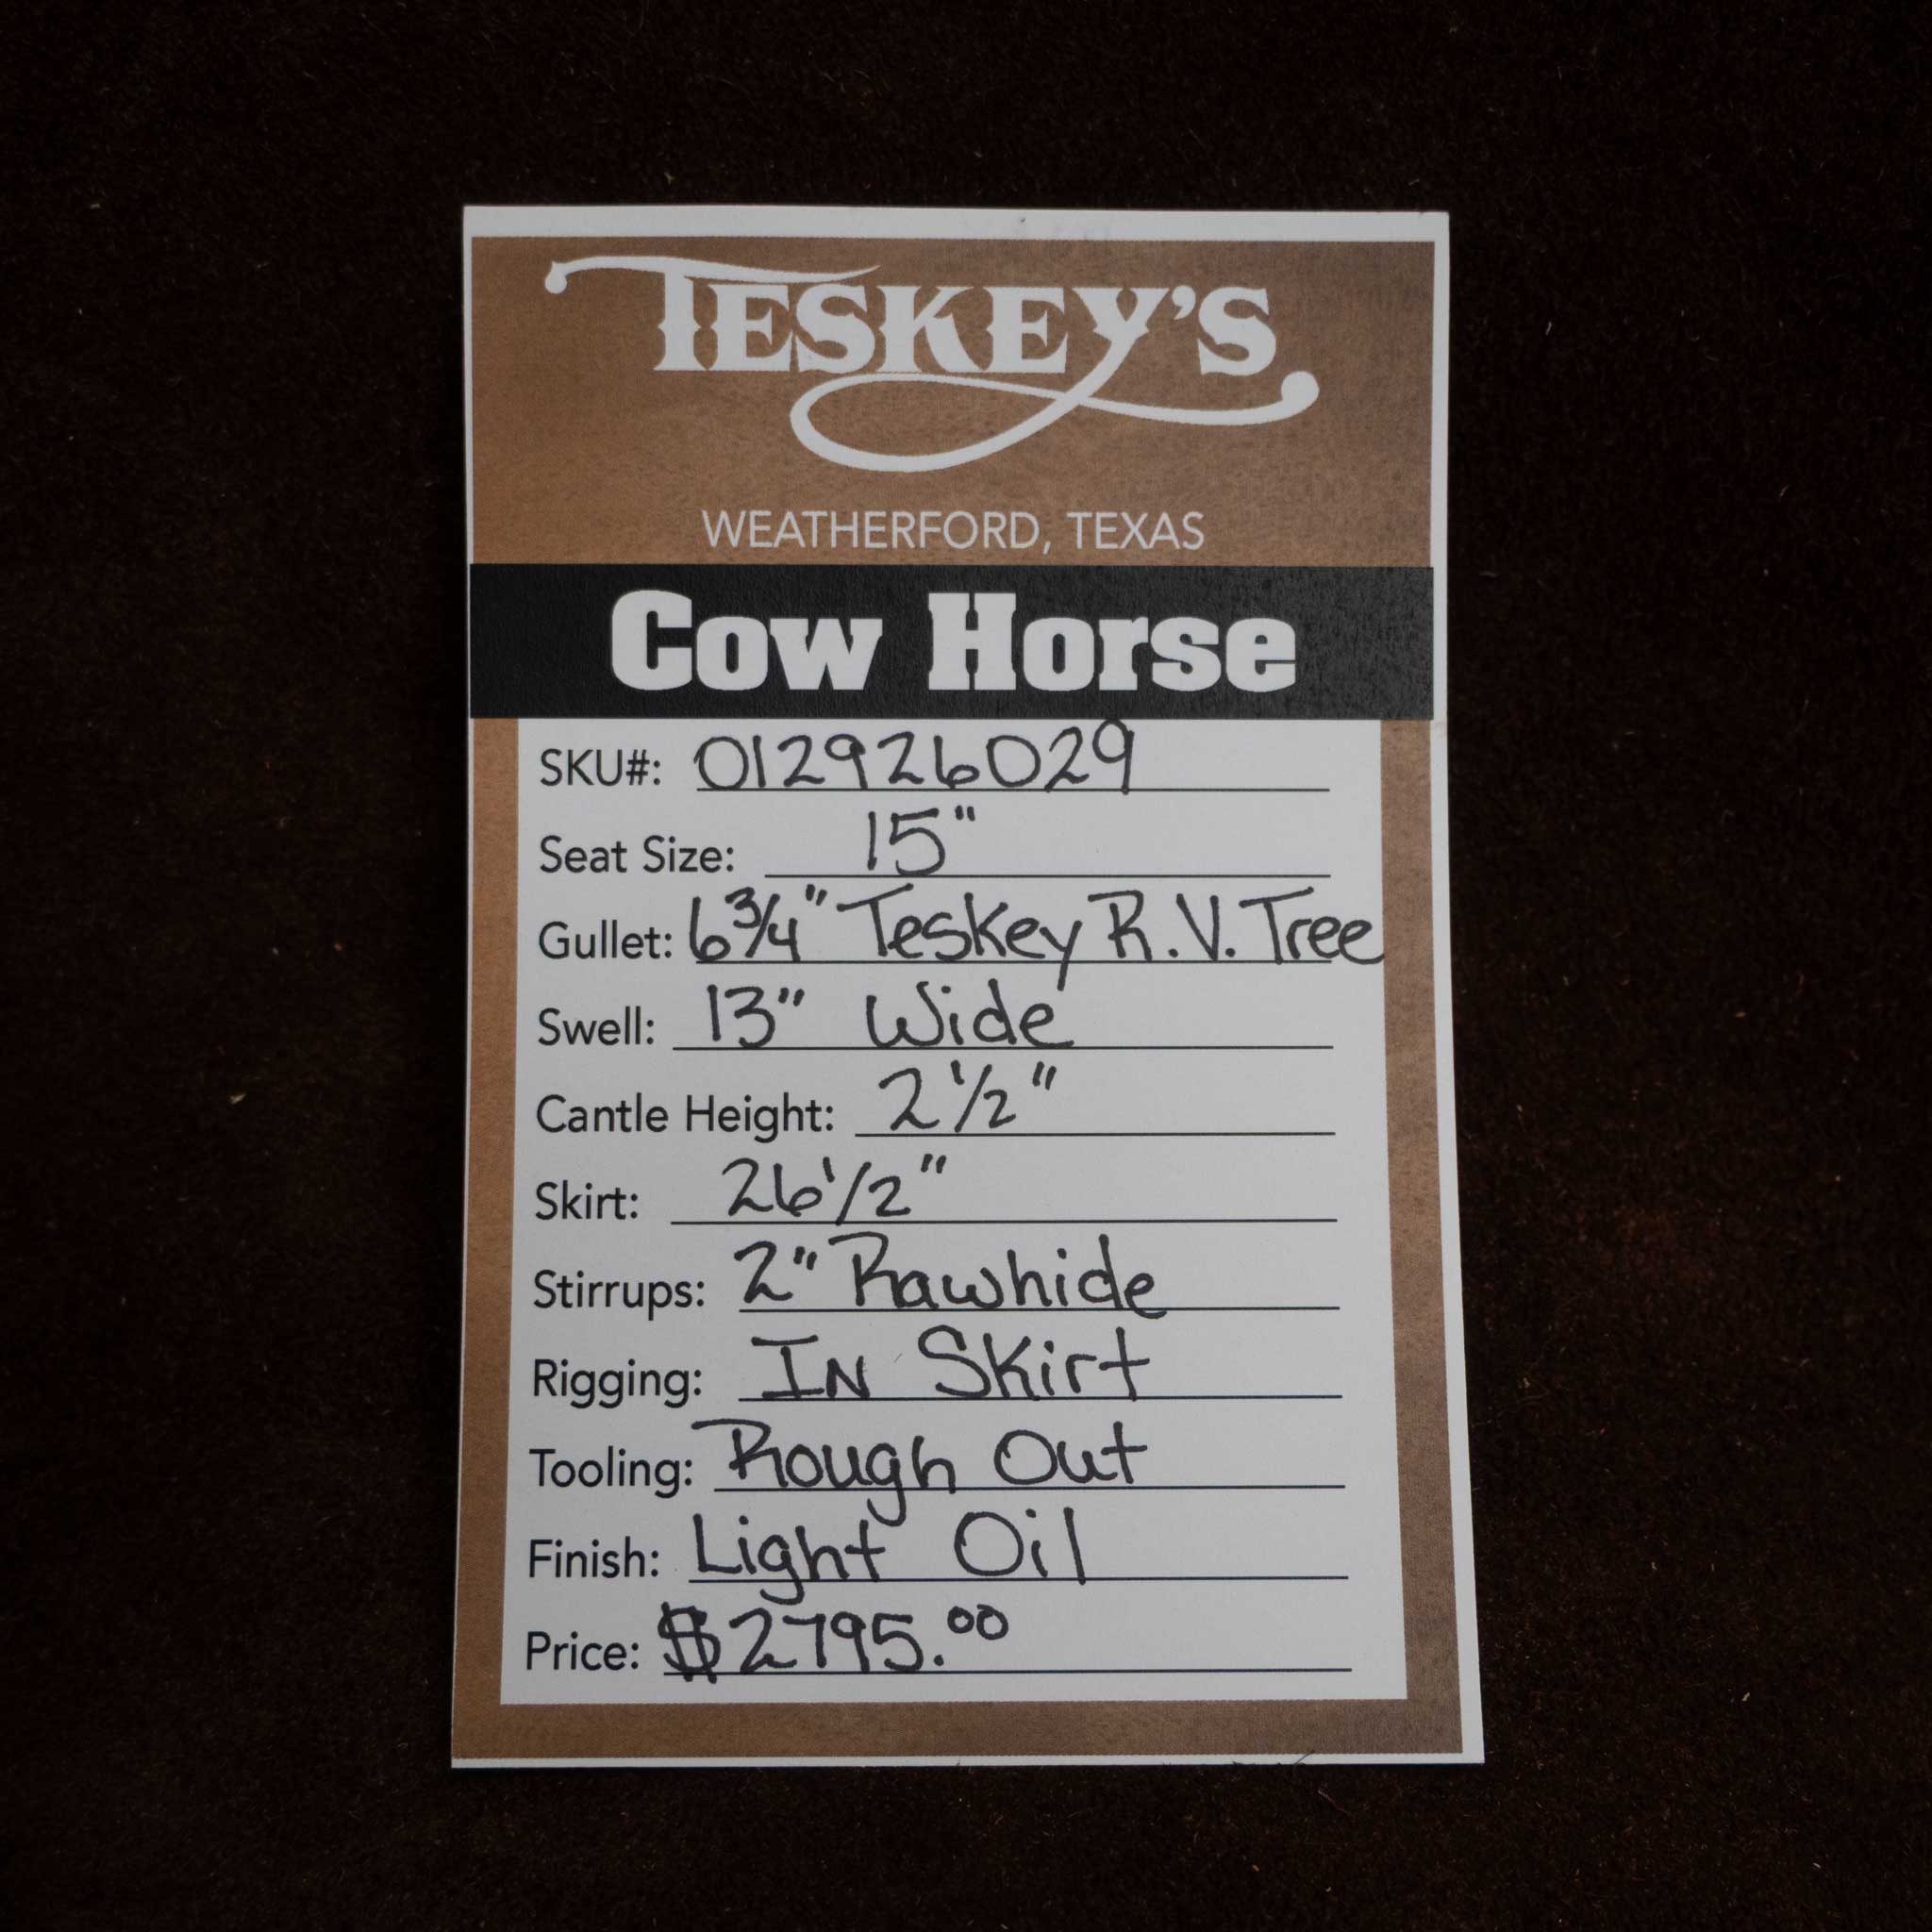 TESKEY'S
WEATHERFORD, TEXAS
Cow Horse
SKU#: 012926029
Seat Size: 15"
Gullet: 6 3/4" Teskey R.V. Tree
Swell: 13" Wide
Cantle Height: 2 1/2"
Skirt: 26 1/2"
Stirrups: 2" Rawhide
Rigging: IN Skirt
Tooling: Rough Out
Finish: Light Oil
Price: $2795.00